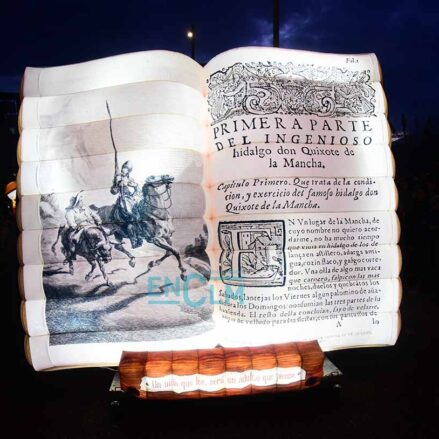 Fol.1
PRIMERA PARTE
DEL INGENIOSO
hidalgo don Quixote de
la Mancha.
Capitulo Primero. Que trata de la condi-
cion, y exercicio del famoso hidalgo don
Quixote de la Mancha.
EN Vn lugar de la Mancha, de
cuyo nombre no quiero acor-
darme, no ha mucho tiempo
que viuia vn hidalgo de los de
lança en astillero, adarga anti-
gua, rozin flaco, y galgo corre-
dor. Vna olla de algo mas vaca
que carnero, salpicon las mas
noches, duelos y quebrãtos los
Sabados, lantejas los Viernes, algun palomino de aña-
didura los Domingos: consumian las tres partes de su
hazienda. El resto della concluian, sayo de velarte,
A
ENCLM
Un niño que lee, será un adulto que piense